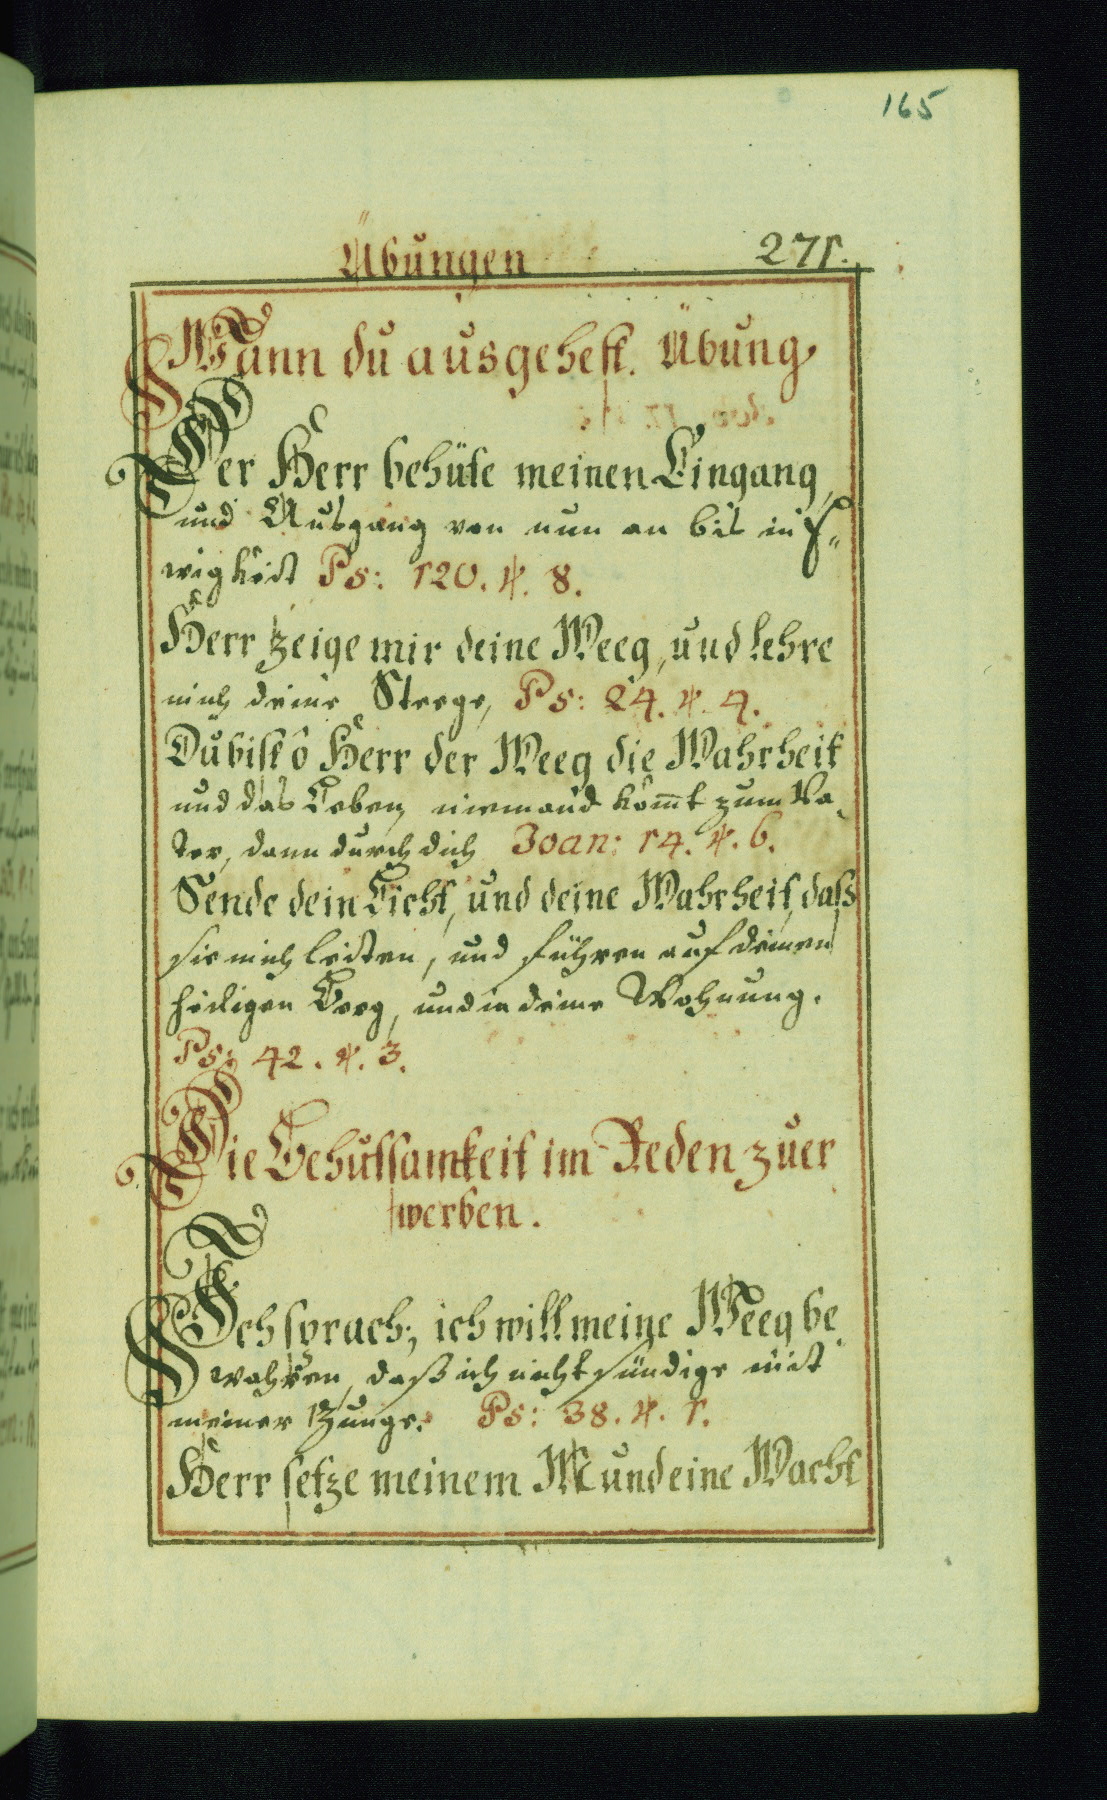 165
Übungen 271.
Wann du ausgehest. Übung
Der Herr behüte meinen Eingang,
und Ausgang von nun an bis in E„
wigkeit Ps: 120. ℣. 8.
Herr zeige mir deine Weeg, und lehre
mich deine Steege, Ps: 24. ℣. 4.
Du bist ô Herr der Weeg die Wahrheit
und das Leben niemand kom̅t zum Va„
ter, dann durch dich Joan: 14. ℣. 6.
Sende dein Licht, und deine Wahrheit, daß
sie mich leiten, und führen auf deinen
heiligen Berg, und in deine Wohnung.
Ps: 42. ℣. 3.
Die Behutsamkeit im Reden zu er
werben.
Ich sprach; ich will meine Weeg be„
wahren, daß ich nicht sündige mit
meiner Zunge. Ps: 38. ℣. 1.
Herr setze meinem Mund eine Wacht